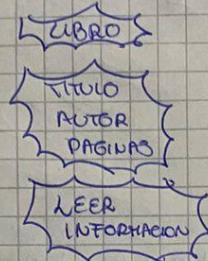 LIBRO
TITULO
AUTOR
PAGINAS
LEER
INFORMACION